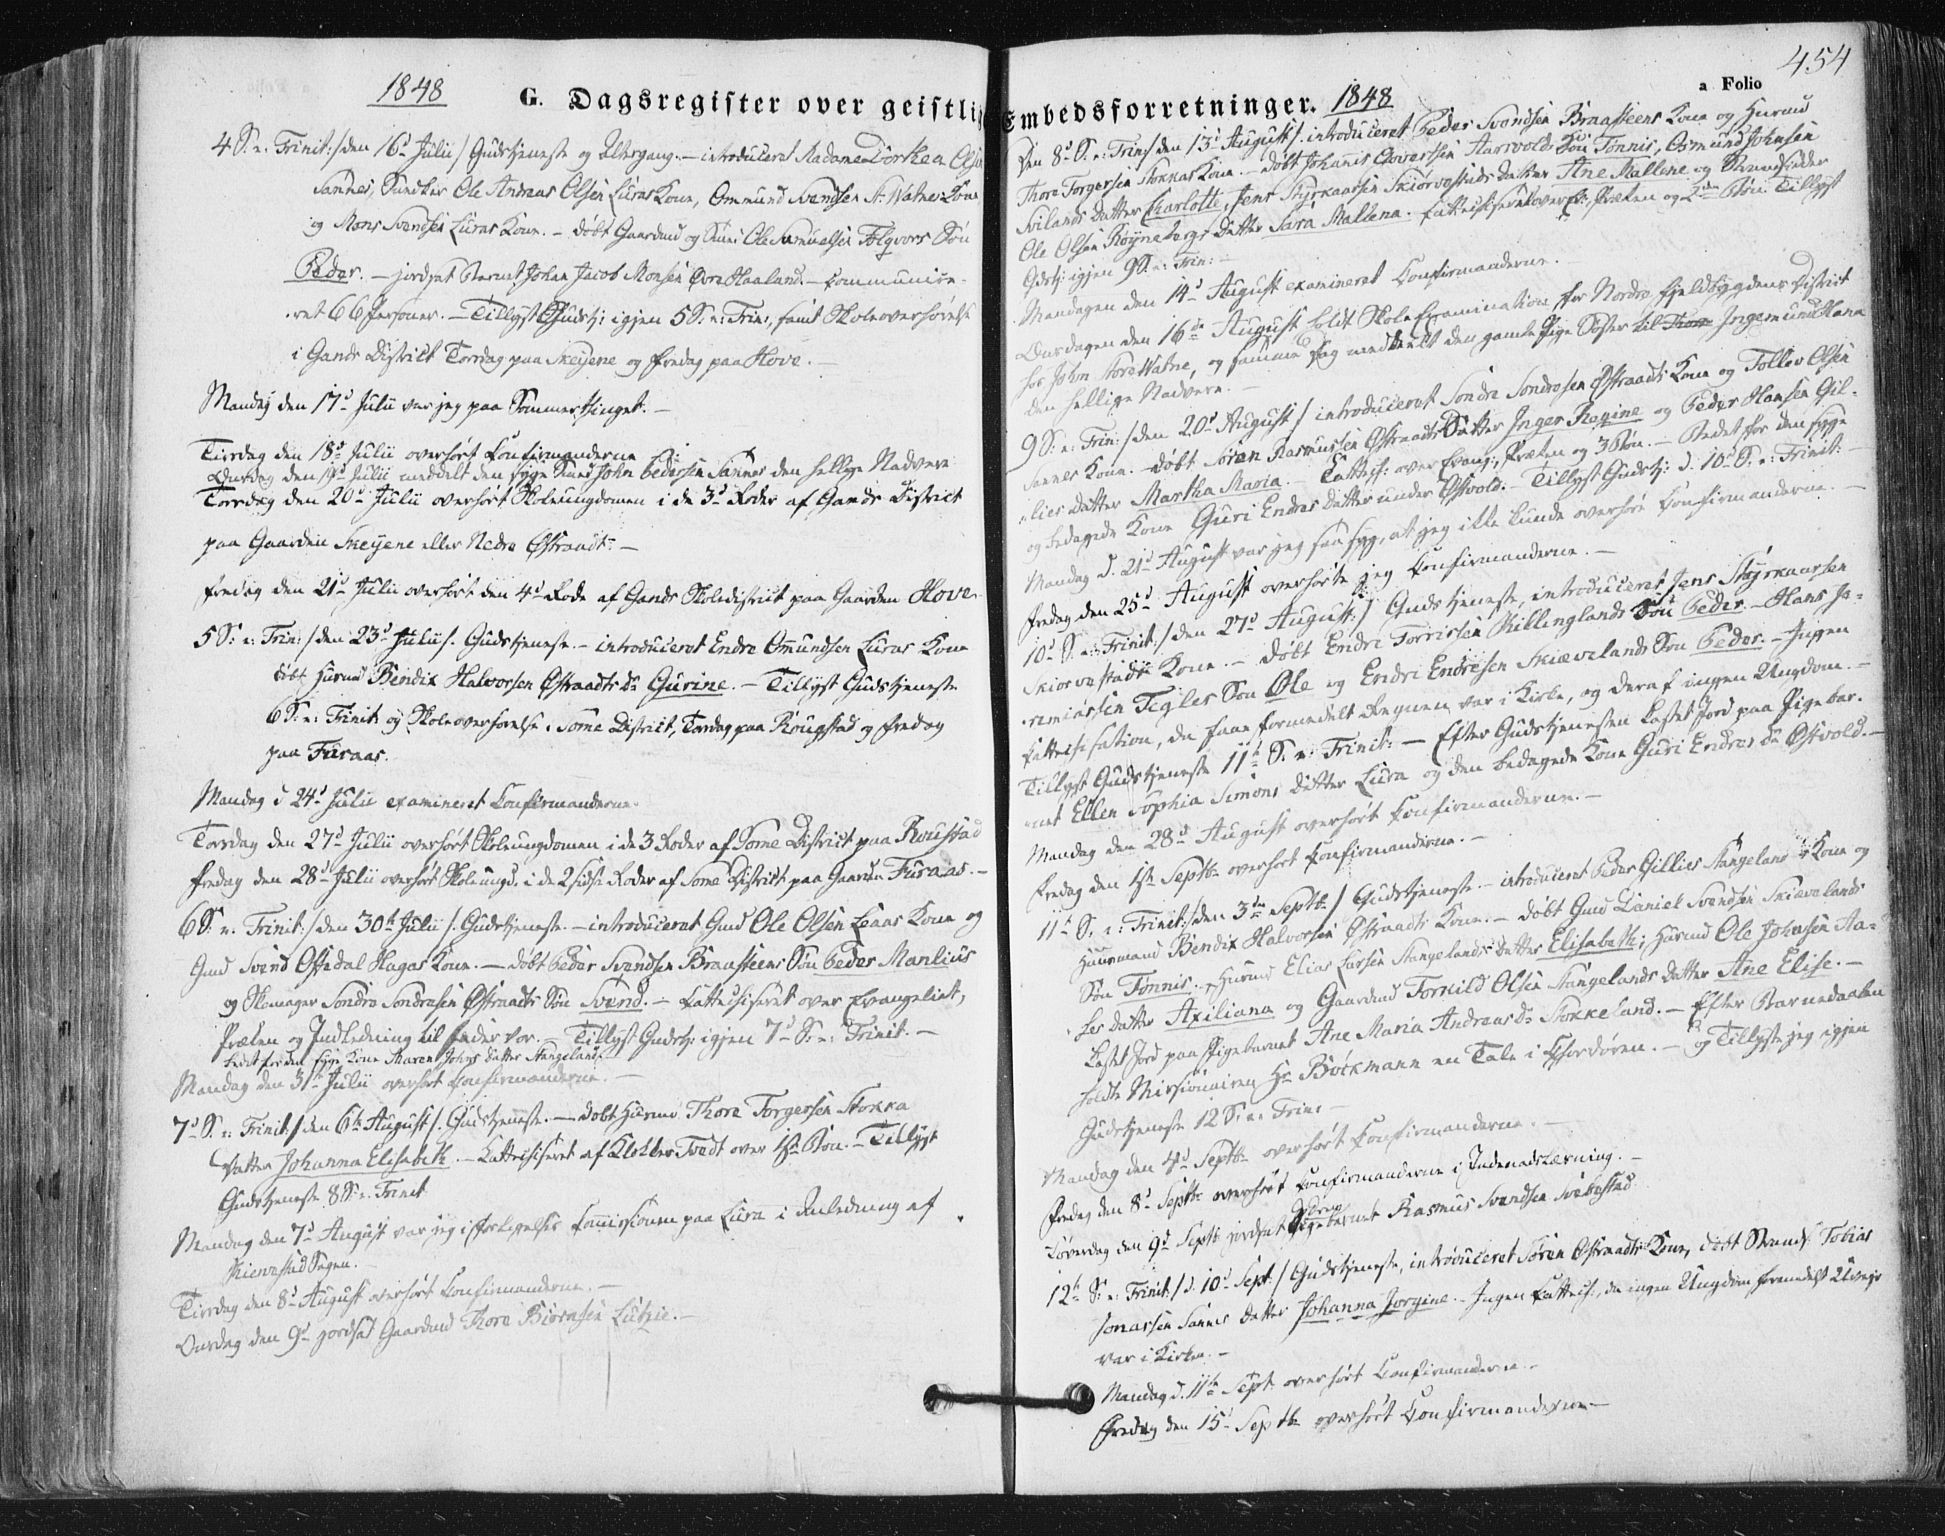 1848
G. Dagsregister over geistli
4 S: e: Trinit:/den 16d Julii/ Gudstjeneste og Altergang. – introduceret Madame Dorthea Olsen
Sannes, Ole Andreas Olsen Luras Kone, Ommund Svendsen St: Watnes Kone
og Mons Svendsen Luras Kone. – døbt Gaardmd og Ole Samuelsen Folqvors Søn
Peder. – jordsat Barnet Johan Jacob Monsen Øvre Haaland. – communice-
ret 66 Personer. – Tillyst Gudstj: igjen 5 S: e: Trin:, samt Skoleoverhørelse
i Gands District Torsdag paa Skeijene og Fredag paa Hove. –
Mandag den 17d Julii var jeg paa Sommerthinget. –
Tirsdag den 18d Julii overhørt Confirmanderne
Onsdag den 19d Julii meddelt den syge John Pedersen Sannes den hellige Nadvere
Torsdag den 20d Julii overhørt Skoleungdomen i de 3d Roder af Gands District
paa Gaarden Skeijene eller Nedre Østraadt. –
Fredag den 21d Julii overhørt den 4d Rode af Gands Skoledistrict paa Gaarden Hove.
5 S: e: Trin:/den 23d Julii/. Gudstjeneste. – introduceret Endre Omundsen Luras Kone
døbt Husmd Bendix Halvorsen Østraadts Dr Gurine. – Tillyst Gudstjeneste
6 S: e: Trinit: og Skoleoverhørelse i Somme District, Torsdag paa Rougstad og Fredag
paa Furaas.
Mandag d 24d Julii examineret Confirmanderne.
Torsdag den 27d Julii overhørt Skoleungdomen i de 3 Roder af Somme District paa Roustad
Fredag den 28d Julii overhørt Skoleungd. i de 2 sidste Roder af Somme District paa Gaarden Furaas. –
6 S: e: Trinit:/den 30te Julii/. Gudstjeneste. – introduceret Gmd Ole Olsen Leaas Kone og
Gmd Svend Ostedal Hagas Kone. – døbt Peder Svendsen Braasteens Søn Peder Manlius
og Skomager Sondre Sondresen Østraadts Søn Svend. – Cattechiseret over Evangeliet,
Præken og Indledning til Fader vor. – Tillyst Gudstj: igjen 7d S: e: Trinit. –
Bedet for den syge Kone Maren Johns Datter Stangeland.
Mandag den 31te Julii overhørt Confirmanderne. –
7d S. e: Trinit:/den 6te August/. Gudstjeneste. – døbt Husmd Thore Torgersen Stokka
Datter Johanna Elisabeth. – Cattechiseret af Klokker Tvedt over 1ste Bøn. – Tillyst
Gudstjeneste 8 S: e: Trinit
Mandag den 7d August var jeg i Forligelses Commissionen paa Lura i Anledning af
Skiervestad Sagen. –
Tirsdag den 8d August overhørt Confirmanderne. –
Onsdag den 9d jordsat Gaardmd Thore Biørnsen Lutzie. –
454
a Folio
Embedsforretninger.
1848
Den 8d S. e: Trin:/den 13d August/. introduceret Peder Svendsen Braasteens Kone og Husmd
Thore Torgersen Stokkas Kone. – døbt Johanis Govertsen Aarsvolds Søn Tønnis, Osmund Johnsen
Svilands Datter Charlotte, Jens Styrkaarsen Skiørvestads Datter Ane Mallene og
Ole Olsen Røynebergs Datter Sara Mallena. Cattechiseret over Præken og 2den Bøn Tillyst
Gdstj: igjen 9 S: e: Trin: –
Mandagen den 14d August examineret Confirmanderne.
Onsdagen den 16de August holdt Skole Examination for Nordre Fjeldbygdens District
hos John Store Watne, og samme Dag meddeelt den gamle Pige Søster til Ingemund Hana
den hellige Nadvere. –
9 S: e: Trin:/den 20d August/ introduceret Sondre Sondresen Østraadts Kone og Tollev Olsen
Sannes Kone. – døbt Søren Rasmussen Østraadts Datter Inger Regine og Peder Hansen Gil-
lies Datter Martha Maria. – Cattech: over Evang:, Præken og 3 Bøn. – Bedet for den syge
og bedagede Kone Guri Endres Datter under Østvold. – Tillyst Gudstj: d: 10d S. e: Trinit: –
Mandag d. 21d August var jeg saa syg, at jeg ikke kunde overhøre Confirmanderne. –
Fredag den 25d August overhørte jeg Confirmanderne. –
10d S. e: Trinit:/den 27d August:/ Gudstjeneste, introduceret Jens Styrkaarsen
Skiorvestads Kone. – Døbt Endre Torrissen Skillinglands Søn Peder. – Hans Je-
remiassen Tegles Søn Ole og Endri Endresen Skiævelands Søn Peder. – Ingen
Cattechisation, da faae formedelst Regnen var i Kirke, og deraf ingen Ungdom. –
Tillyst Gudstjeneste 11te S. e: Trinit: – Efter Gudstjenesten kastet Jord paa Pigebar-
net Ellen Sophia Simons Datter Lura og den bedagede Kone Guri Endres Dr Østvold. –
Mandag den 28d August overhørt Confirmanderne. –
Fredag den 1ste Septb: overhørt Confirmanderne. –
11te S. e: Trinit:/den 3die Septb:/ Gudstjeneste. – introduceret Peder Gillies Stangeland s Kone og
Huusmand Bendix Halvorsen Østraadts Kone. – døbt Gmd Daniel Svendsen Skiævelands
Søn Tønnis, Husmd Elias Larsen Stangelands Datter Elisabeth; Husmd Ole Johnsen Aa-
ses Datter Axiliana og Gaardmd Torkild Olsen Stangelands Datter Ane Elise. –
Kastet Jord paa Pigebarnet Ane Maria Andreas Dr Stokkeland. – Efter Barnedaaben
holdt Missionairen Hr Bøckmann en Tale i Chordøren. – og Tillyste jeg igjen
Gudstjeneste 12 S: e: Trin: –
Mandag den 4d Septb: overhørt Confirmanderne. –
Fredag den 8d Septb: overhørt Confirmanderne i Indenadslæsning. –
Løverdag den 9d Septb: jordsat Drengebarnet Rasmus Svendsen Svebestad
12te S: e: Trinit:/d. 10d Sept:/ Gudstjeneste, introduceret Søren Østraadts Kone, døbt Tobias
Jonassen Sannes Datter Johanna Jorgine. – Ingen Cattech:, da ingen Ungdom formedelst Uveir
var i Kirken. –
Mandag d. 11te Sept: overhørt Confirmanderne. –
Fredag den 15d Septb: overhørt Confirmanderne –